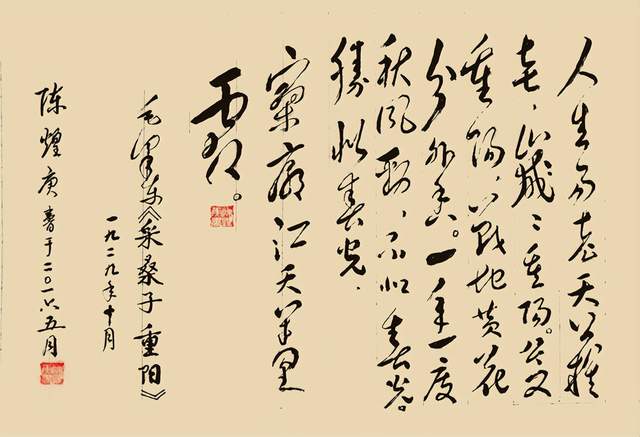 人生易老天难
老，岁岁重阳。今又
重阳，战地黄花
分外香。一年一度
秋风劲，不似春光。
胜似春光，
寥廓江天万里
霜。
毛泽东《采桑子 重阳》
一九二九年十月
陈煌庚書于二〇一六五月